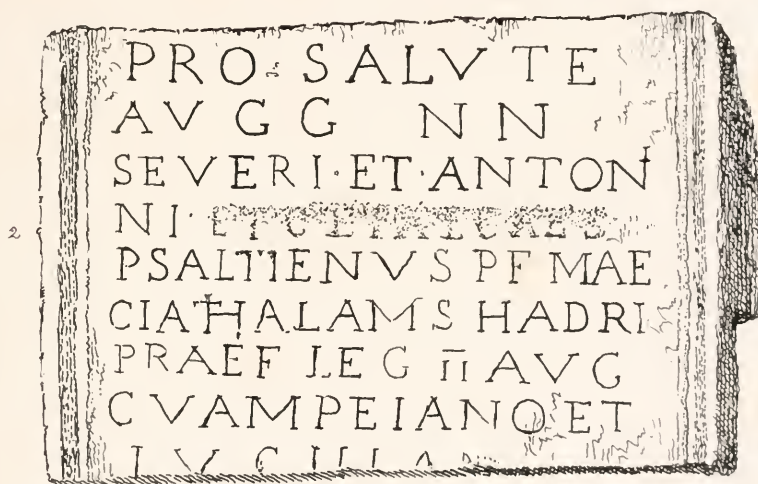 PRO SALVTE
AVGG NN
SEVERI·ET·ANTONI
2
NI·
PSALTIENVS PF MAE
CIATHALAMS HADRI
PRAEF LEG II AVG
CVAMPEIANO ET